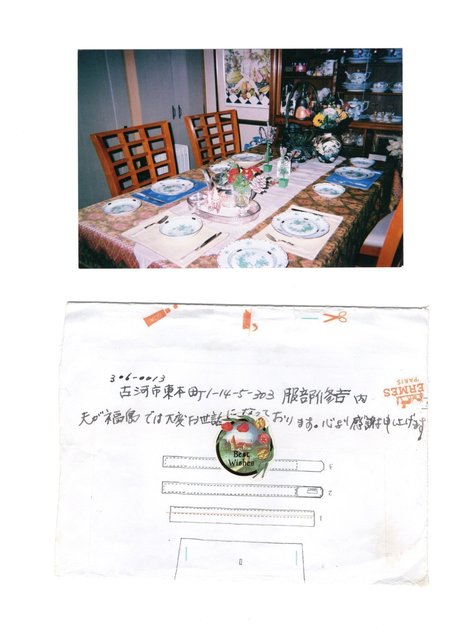 306-0013
古河市東本町1-14-5-303 服部修 内
HERMES
PARIS
夫が福島では大変お世話になっております。心より感謝申し上げます
Best
Wishes
3
2
1